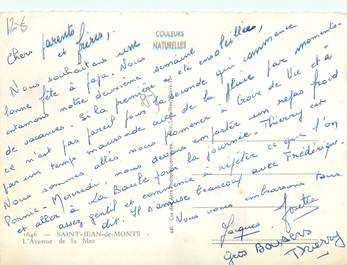 12-6
Chers parents
et frères,
COULEURS
NATURELLES
Nous souhaitons une
bonne fête à papa. Nous
entamons notre deuxième semaine
de vacances. Si la première a été ensoleillée,
ce n'est pas pareil pour la seconde qui commence
par un temps maussade avec de la pluie par moments.
Nous sommes allés nous promener à Croix de Vie et à
Pornic. Mercredi, nous devons emporter un repas froid
et aller à La Baule pour la journée. Thierry est
assez gentil et commence à répéter ce que l'on
dit. Il s'amuse beaucoup avec Frédérique.
Nous vous embrassons tous
Jacques Josette
gros Baisers
Thierry
1646 - SAINT-JEAN-de-MONTS -
L'Avenue de la Mer